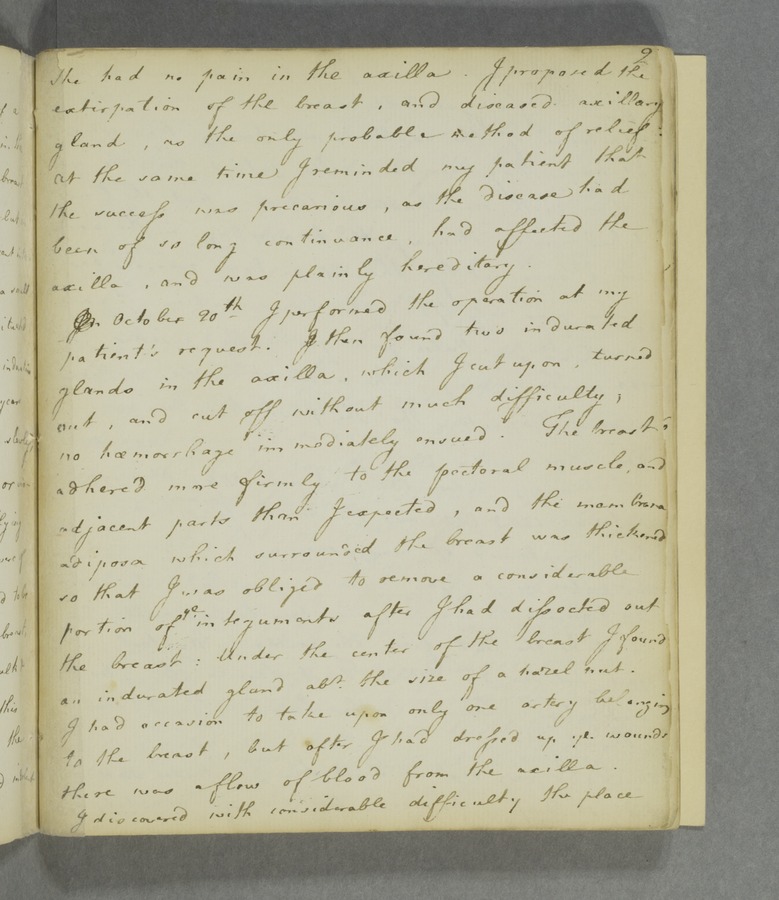 2
She had no pain in the axilla. I proposed the
extirpation of the breast, and diseased axillary
gland, as the only probable method of relief:
at the same time I reminded my patient that
the success was precarious, as the disease had
been of so long continuance, had affected the
axilla, and was plainly hereditary.
On October 20th I performed the operation at my
patient's request. I then found two indurated
glands in the axilla, which I cut upon, turned
out, and cut off without much difficulty;
no hæmorrhage immediately ensued. The breast
adhered more firmly to the pectoral muscle, and
adjacent parts than I expected, and the membrana
adiposa which surrounded the breast was thickened
so that I was obliged to remove a considerable
portion of ye integuments after I had dissected out
the breast: Under the center of the breast I found
an indurated gland abt. the size of a hazel nut.
I had occasion to take upon only one artery belonging
to the breast, but after I had dressed up ye wounds
there was a flow of blood from the axilla.
I discovered with considerable difficulty the place